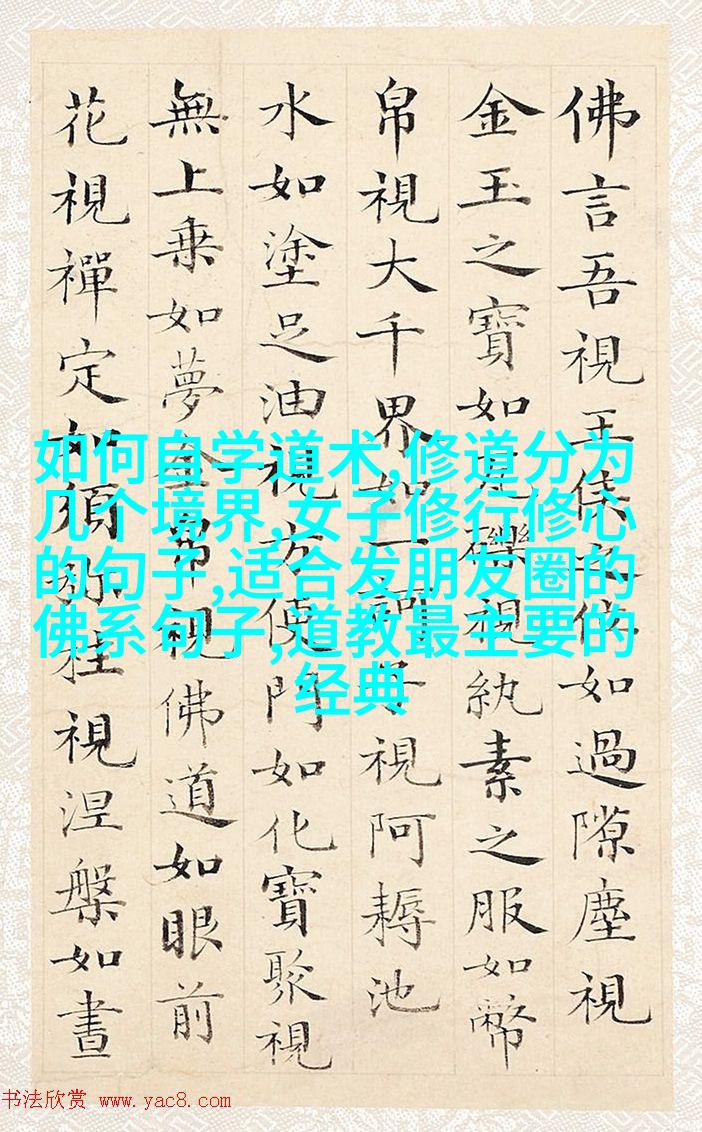 佛言吾視王侯之位如過隙塵視
金玉之寶如瓦礫視紈素之服如幣
帛視大千界如一訶子視阿耨池
水如塗足油視方便門如化寶聚視
無上乗如夢金帛視佛道如眼前
花視禪定如須弥柱視涅槃如晝
如何自学道术,修道分为
几个境界,女子修行修心
的句子,适合发朋友圈的
佛系句子,道教最主要的
经典
书法欣赏 www.yac8.com